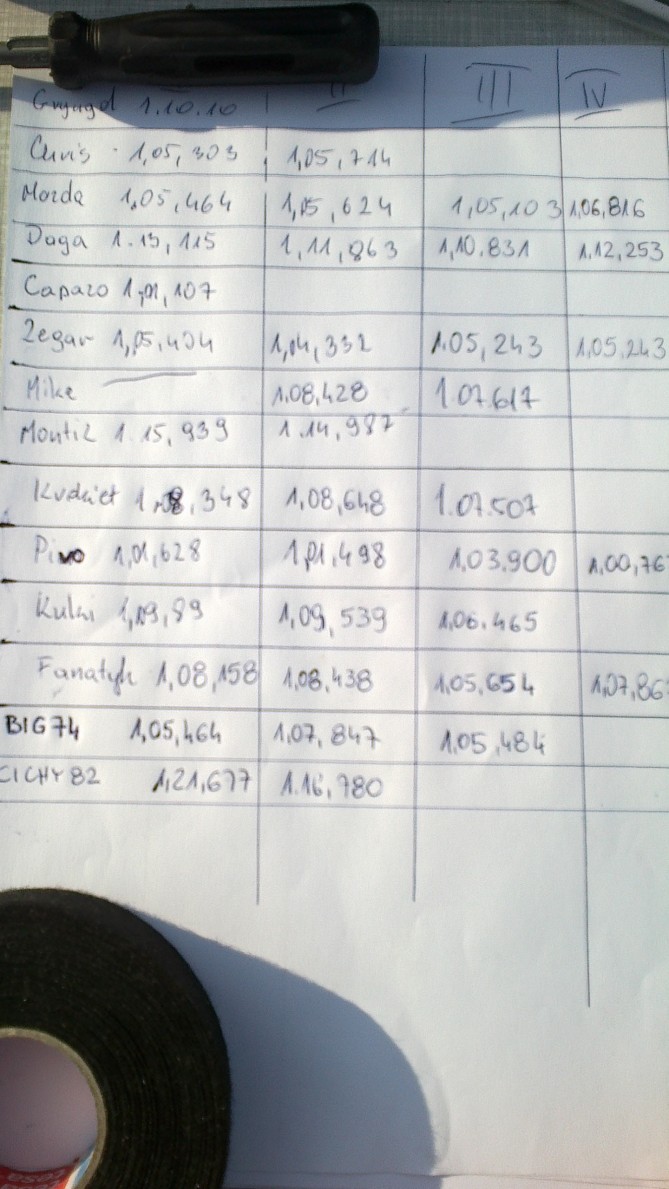 II III IV
1.10.10
Chris 1,05,303 1,05,714
Morda 1.05,464 1,05,624 1,05,103 1,06,816
Daga 1.15,115 1,11,863 1,10.831 1.12,253
Caparo 1,01,107
Zegar 1,05,404 1,04,332 1.05,243 1,05.243
Mike 1.08,428 1.07.617
Montiz 1.15,939 1.14,987
1,08,348 1,08,648 1.07.507
Pivo 1,01,628 1,01.498 1,03,900 1,00,76
1,09,89 1,09,539 1,06.465
Fanatyk 1,08,158 1,08,438 1,05,654 1,07,86
BIG74 1,05,464 1,07,847 1.05,484
CICHY82 1,21,677 1.16,780